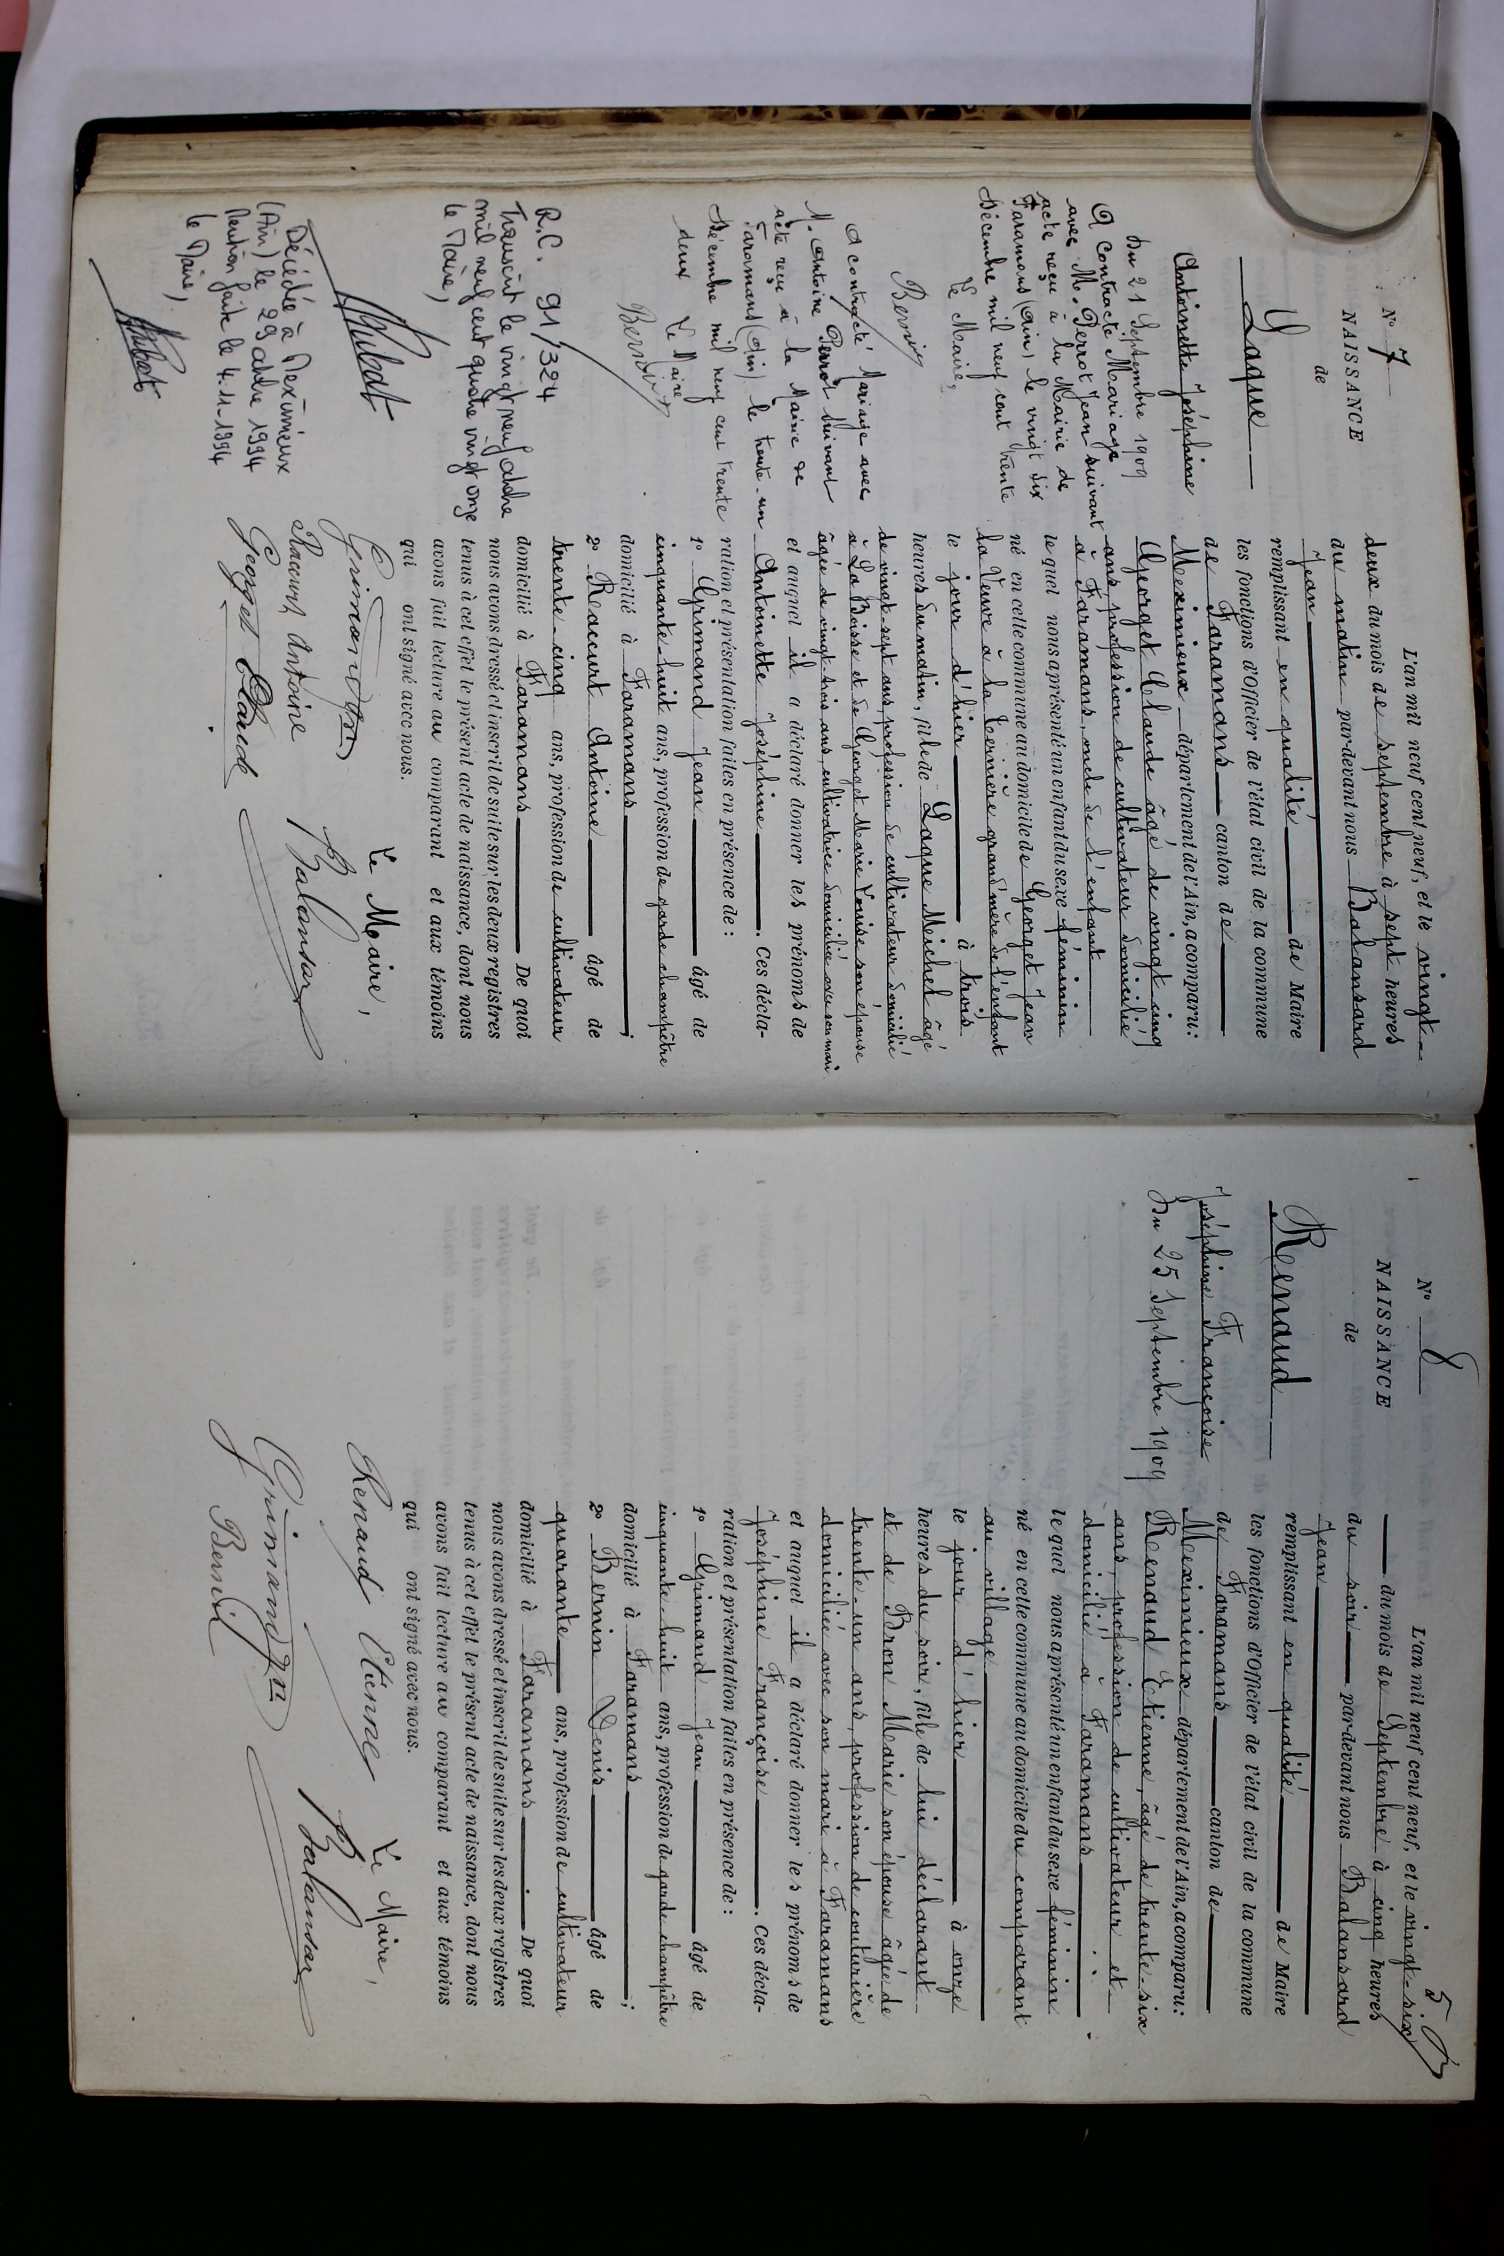 N° 7
NAISSANCE
de
Laque
Antoinette Joséphine
Du 21 Septembre 1909
A contracté Mariage
avec M. Perrot Jean suivant
acte reçu à la Mairie de
Faramans (Ain) le vingt six
Décembre mil neuf cent trente
Le Maire,
A contracté Mariage avec
M. Antoine Perrot suivant
acte reçu à la Mairie de
Faramans (Ain) le trente-un
Décembre mil neuf cent trente
deux Le Maire
R.C. 91/324
Transcrit le vingt neuf octobre
mil neuf cent quatre vingt onze
le Maire,
Décédée à Meximieux
(Ain) le 29 octobre 1994
Mention faite le 4.11.1994
le Maire,
L'an mil neuf cent neuf, et le vingt-
deux du mois de septembre à sept heures
du matin par-devant nous Balansard
Jean
remplissant en qualité de Maire
les fonctions d'officier de l'état civil de la commune
de Faramans canton de
Meximieux département de l'Ain, a comparu:
Georget Claude âgé de vingt cinq
ans, profession de cultivateur domicilié
à Faramans, oncle de l'enfant
lequel nous a présenté un enfant du sexe féminin
né en cette commune au domicile de Georget Jean
la Veuve à la Bernière grand'mère de l'enfant
le jour d'hier à trois
heures du matin, fil de Laque Michel âgé
de vingt-sept ans, profession de cultivateur domicilié
à La Boisse et de Georget Marie Louise son épouse
âgée de vingt-trois ans, cultivatrice domiciliée avec son mari
et auquel il a déclaré donner les prénoms de
Antoinette Joséphine. Ces décla-
ration et présentation faites en présence de:
1° Grimand Jean âgé de
cinquante-huit ans, profession de garde champêtre
domicilié à Faramans;
2° Reaccurt Antoine âgé de
trente-cinq ans, profession de cultivateur
domicilié à Faramans De quoi
nous avons dressé et inscrit de suite sur les deux registres
tenus à cet effet le présent acte de naissance, dont nous
avons fait lecture au comparant et aux témoins
qui ont signé avec nous.
Le Maire,
Grimand Jn
Antoine
Balansard
Georget Claude
5
N° 8
NAISSANCE
de
Renaud
Joséphine Françoise
Du 25 Septembre 1909
L'an mil neuf cent neuf, et le vingt-six
du mois de Septembre à cinq heures
du soir par-devant nous Balansard
Jean
remplissant en qualité de Maire
les fonctions d'officier de l'état civil de la commune
de Faramans canton de
Meximieux département de l'Ain, a comparu:
Renaud Etienne, âgé de trente-six
ans, profession de cultivateur et
domicilié à Faramans
lequel nous a présenté un enfant du sexe féminin
né en cette commune au domicile du comparant
au village
le jour d'hier à onze
heures du soir, fille de lui déclarant
et de Bron Marie son épouse âgée de
trente-un ans, profession de couturière
domiciliée avec son mari à Faramans
et auquel il a déclaré donner les prénoms de
Joséphine Françoise. Ces décla-
ration et présentation faites en présence de:
1° Grimand Jean âgé de
cinquante-huit ans, profession de garde champêtre
domicilié à Faramans;
2° Bernin Denis âgé de
quarante ans, profession de cultivateur
domicilié à Faramans. De quoi
nous avons dressé et inscrit de suite sur les deux registres
tenus à cet effet le présent acte de naissance, dont nous
avons fait lecture au comparant et aux témoins
qui ont signé avec nous.
Le Maire,
Renaud Etienne
Balansard
Grimand Jn
Bernin